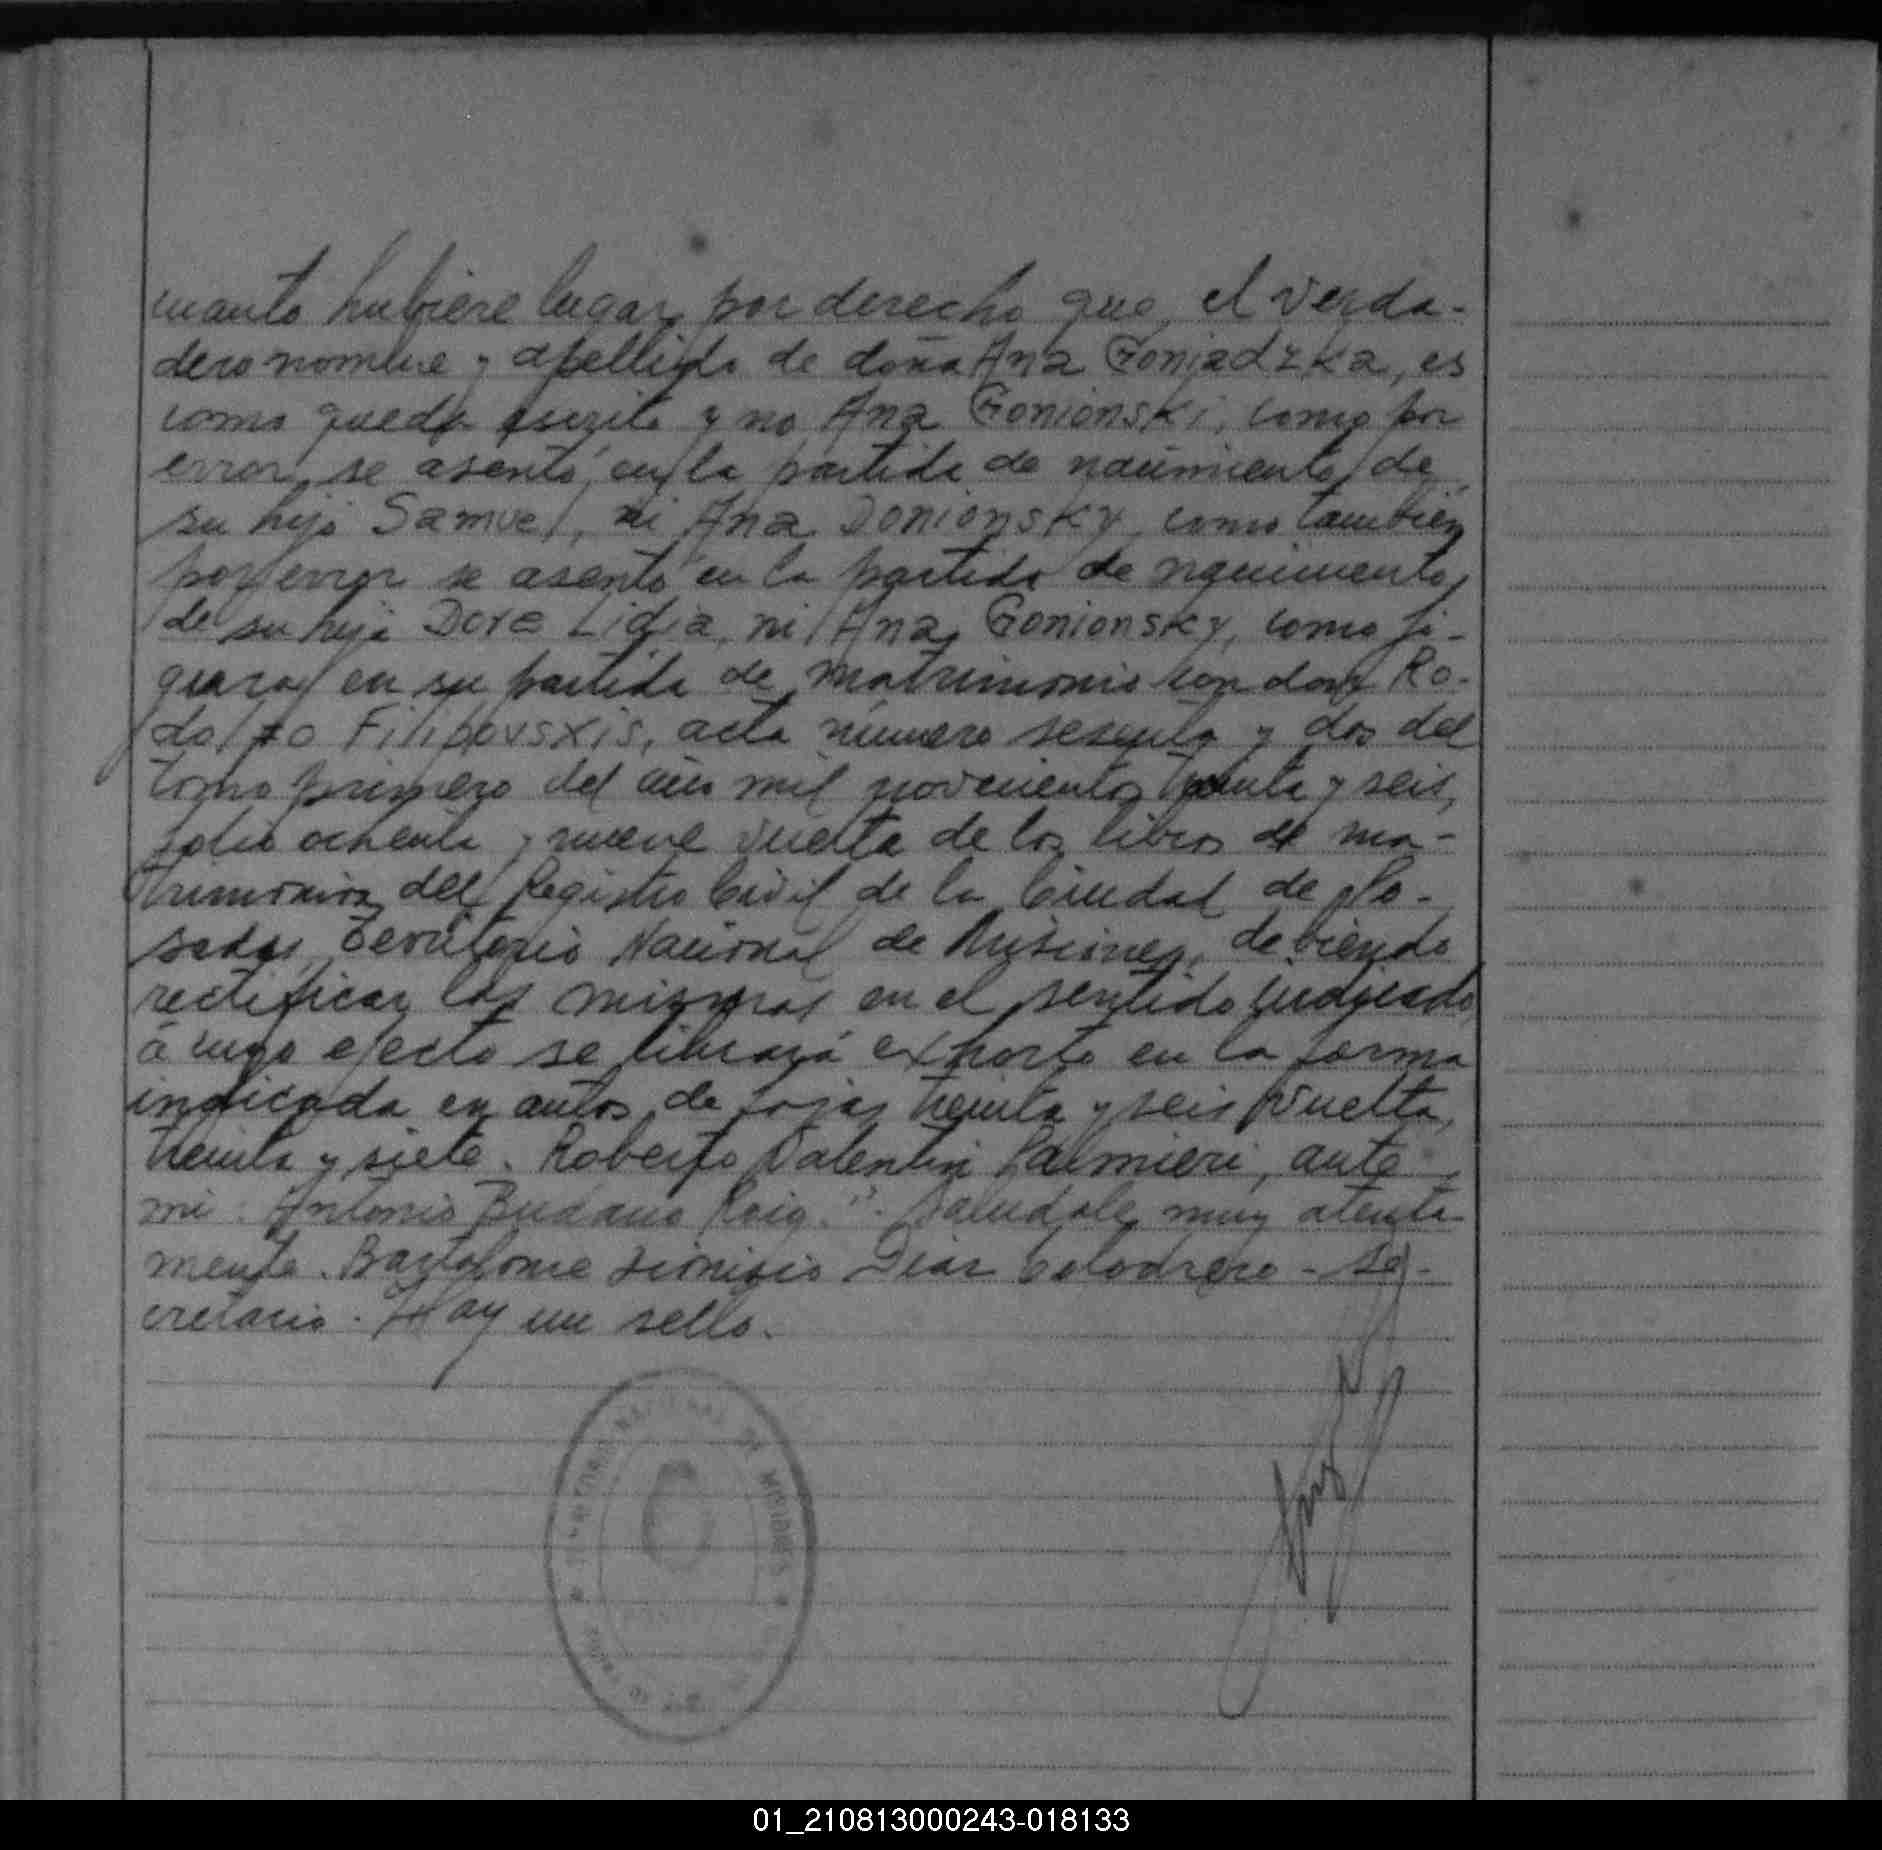 cuanto hubiere lugar por derecho que el verda-
dero nombre y apellido de doña Ana Goniadzka, es
como queda escrito y no Ana Gonionski, como por
error se asentó en la partida de nacimiento de
su hijo Samuel, ni Ana Donionsky, como también
por error se asentó en la partida de nacimiento
de su hija Dora Lidia, ni Ana Gonionsky, como fi-
gura en su partida de matrimonio con don Ro-
dolfo Filipovsxis, acta número sesenta y dos del
tomo primero del año mil novecientos treinta y seis,
folio ochenta y nueve vuelta de los libros de ma-
trimonios del Registro Civil de la Ciudad de Po-
sadas, Territorio Nacional de Misiones, debiendo
rectificar las mismas en el sentido indicado,
á cuyo efecto se librará exhorto en la forma
indicada en autos de fojas treinta y seis vuelta,
treinta y siete. Roberto Valentin Palmieri, ante
mi: Antonio Budano Roig.". Saludale muy atenta-
mente. Bartolome Dionisio Diaz Colodrero - Se-
cretario. Hay un sello.
TERRITORIO NACIONAL DE MISIONES
01_210813000243-018133